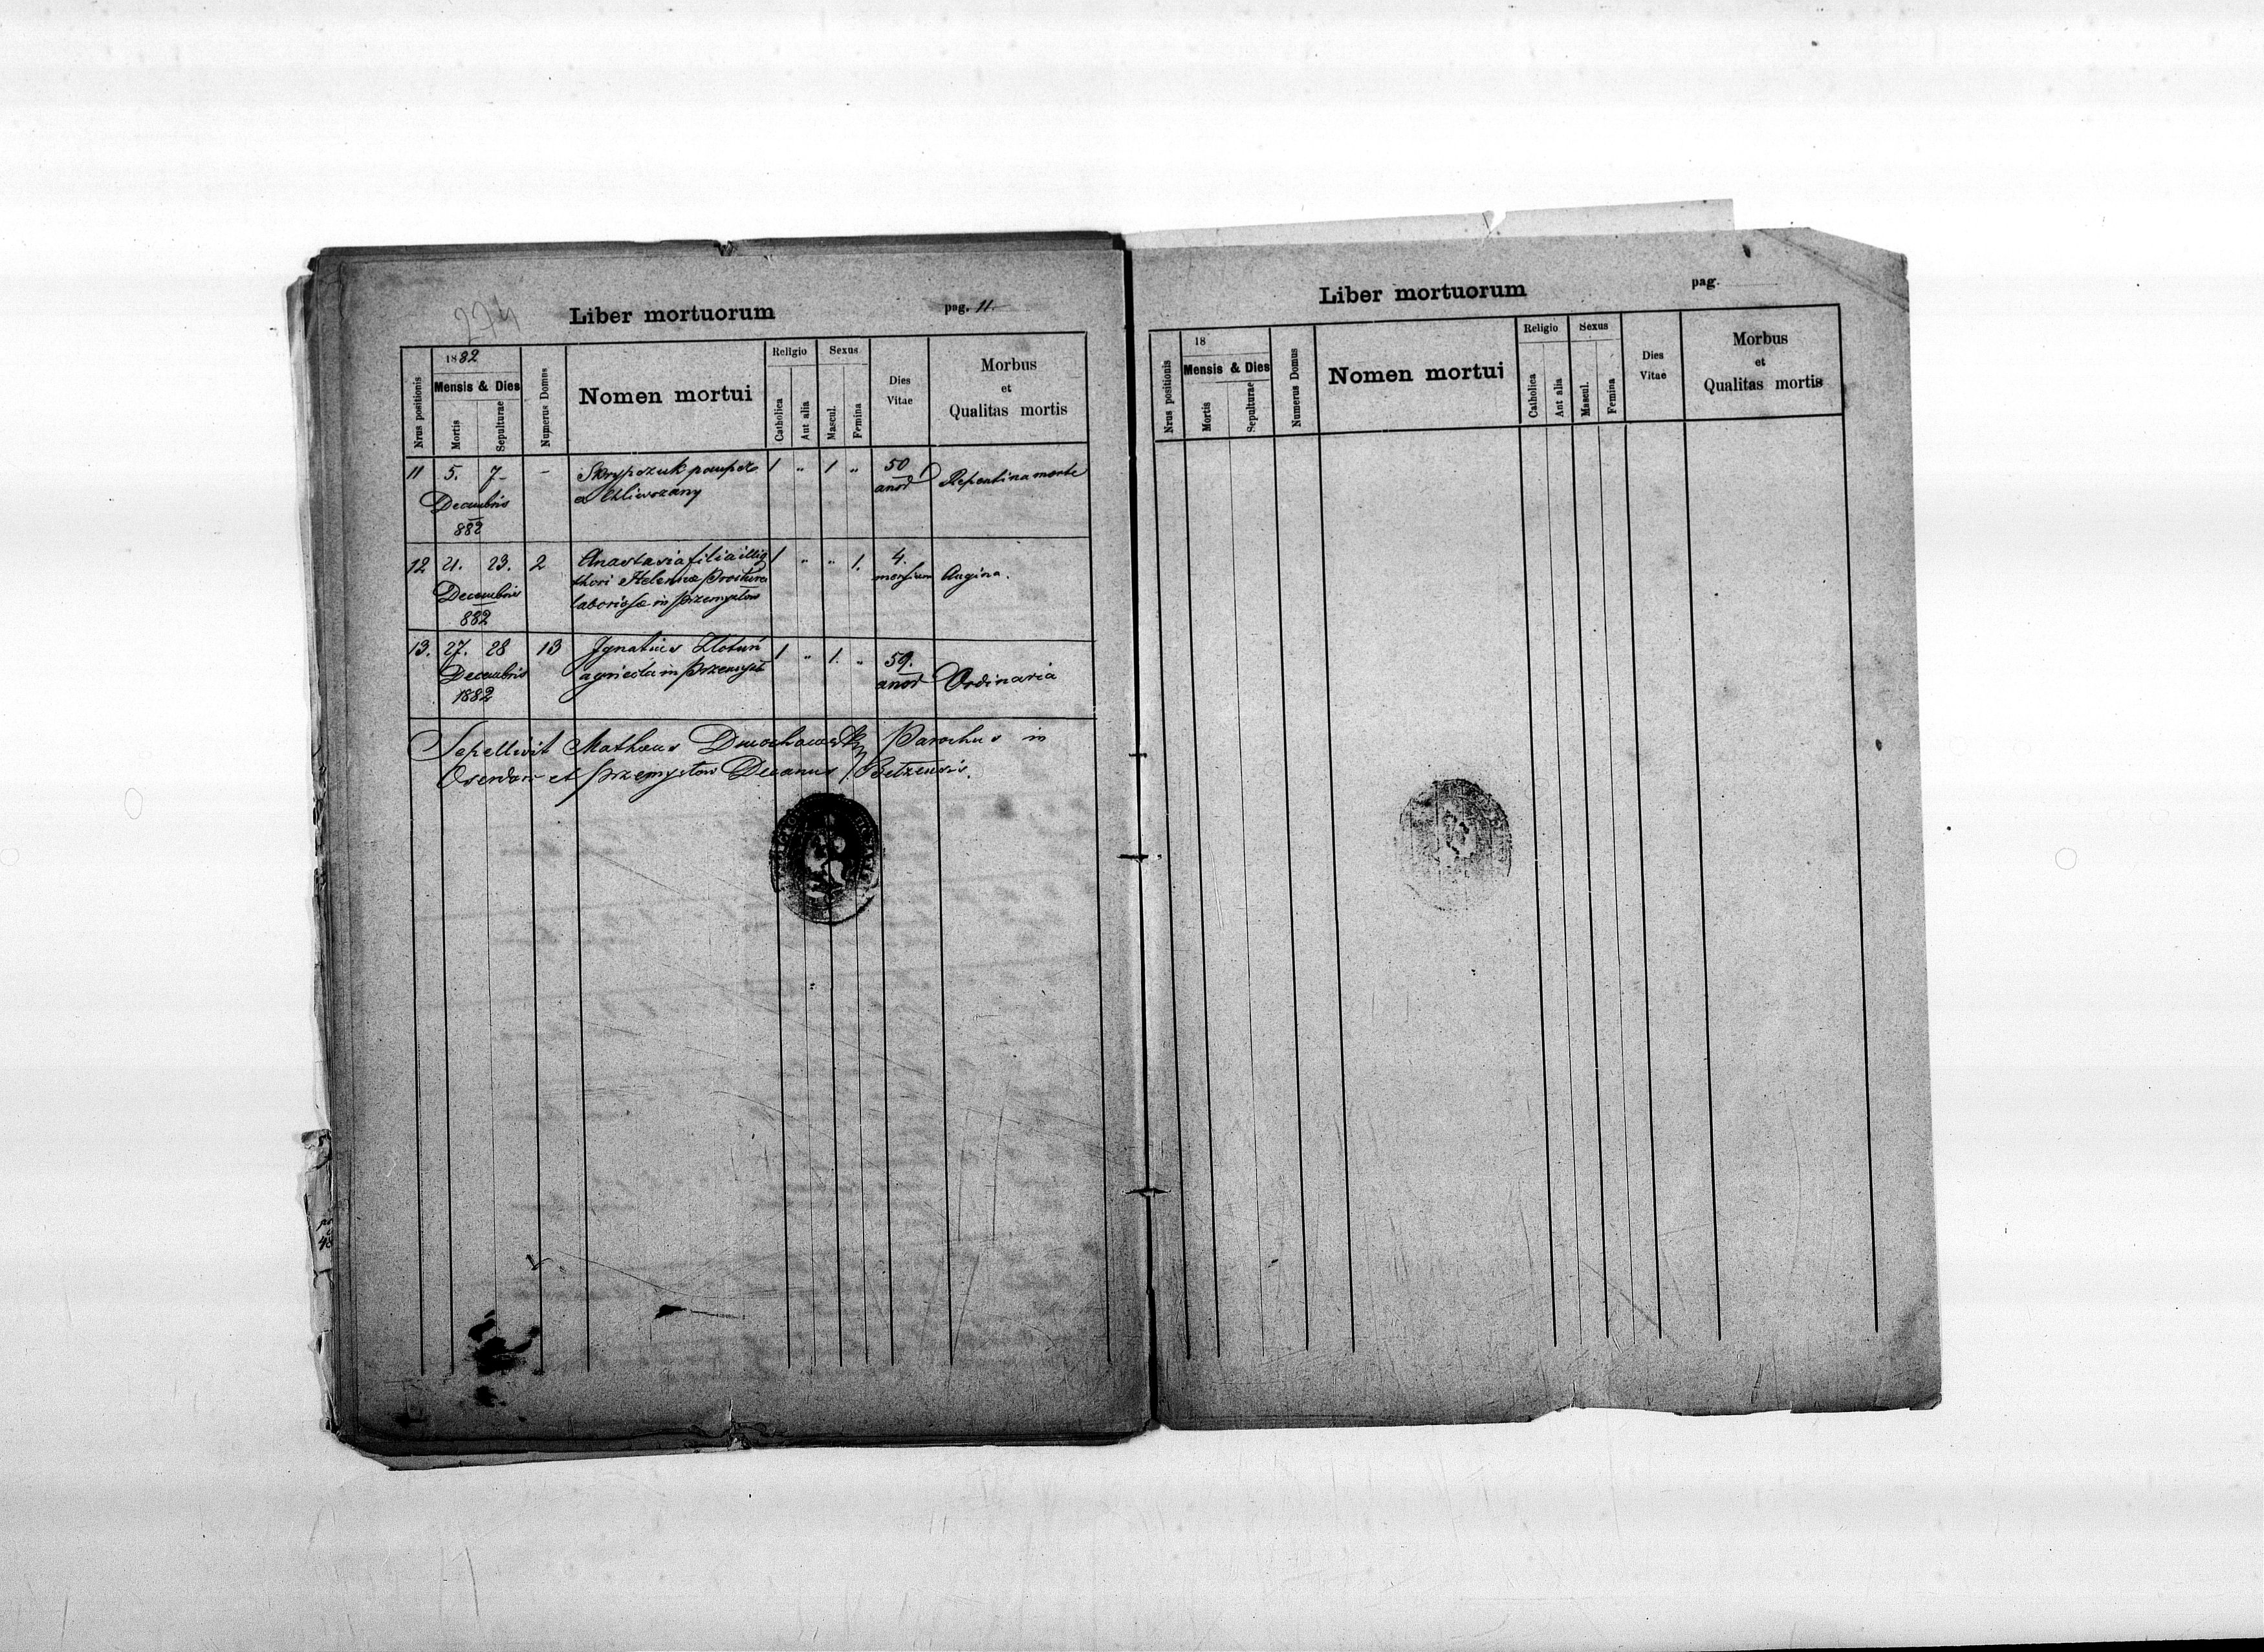 274
Liber mortuorum
pag. 11.
Nrus positionis
1882
Mensis & Dies
Mortis
Sepulturae
Numerus Domus
Nomen mortui
Religio
Catholica
Aut alia
Sexus
Mascul.
Femina
Dies
Vitae
Morbus
et
Qualitas mortis
11 5. 7. - Skrypczuk pauper 1 " 1 " 50 Repentina morte
ex Chliwczany
Decembris
882
12 21. 23. 2 Anastasia filia illig 1 " " 1. 4. Angina.
thori Helenae
laboriosae in Przemysłow
Decembris
882
13. 27. 28 13 Ignatius 1 " 1. " 59. Ordinaria
agricola in Przemysł
Decembris
1882
Sepellivit Mathaeus Parochus in
et Przemysłow Decanus Bełzensis.
Liber mortuorum
pag.
Nrus positionis
18
Mensis & Dies
Mortis
Sepulturae
Numerus Domus
Nomen mortui
Religio
Catholica
Aut alia
Sexus
Mascul.
Femina
Dies
Vitae
Morbus
et
Qualitas mortis